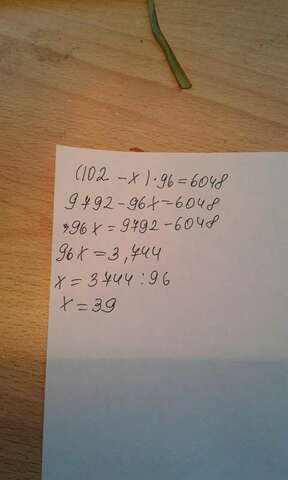 (102 - x) · 96 = 6048
9792 - 96x = 6048
96x = 9792 - 6048
96x = 3,744
x = 3744 : 96
x = 39